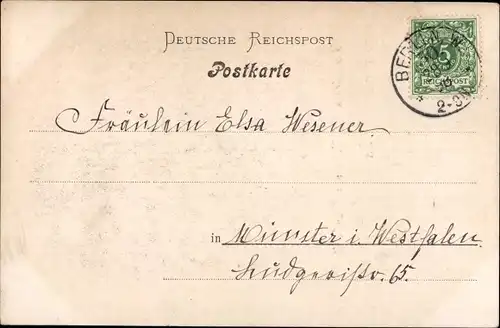 DEUTSCHE REICHSPOST
Postkarte
BERLIN W.
5
REICHSPOST
Fräulein Elsa Wesener
in Münster i. Westfalen
Ludgeristr. 65.